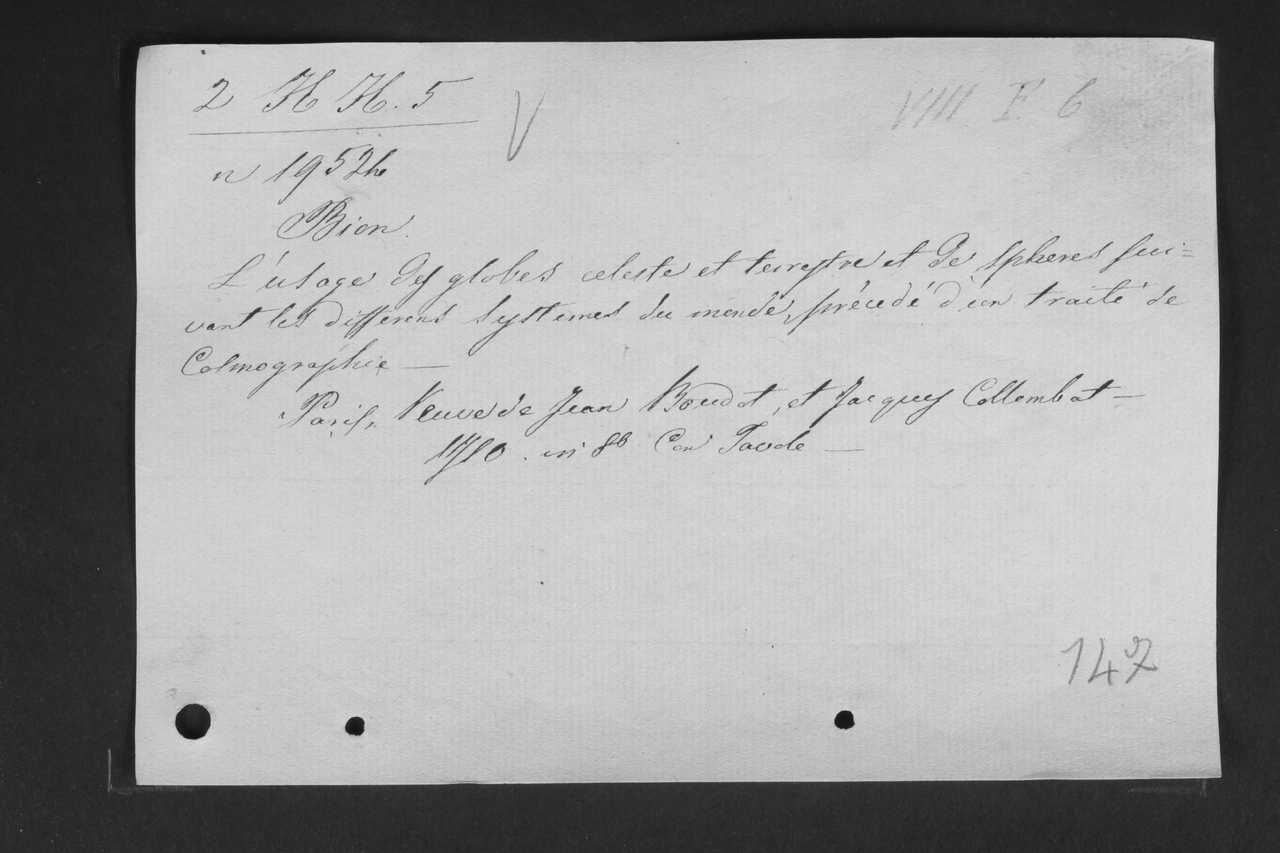 2 H H. 5
V
VIII F 6
n 19524
Bion.
L'usage des globes celeste et terrestre et de spheres sui=
vant les differens systemes du monde, précedé d'un traité de
Cosmographie —
Paris, Veuve de Jean Boudot, et Jacques Collombat —
1710. in 8º Con Tavole —
147